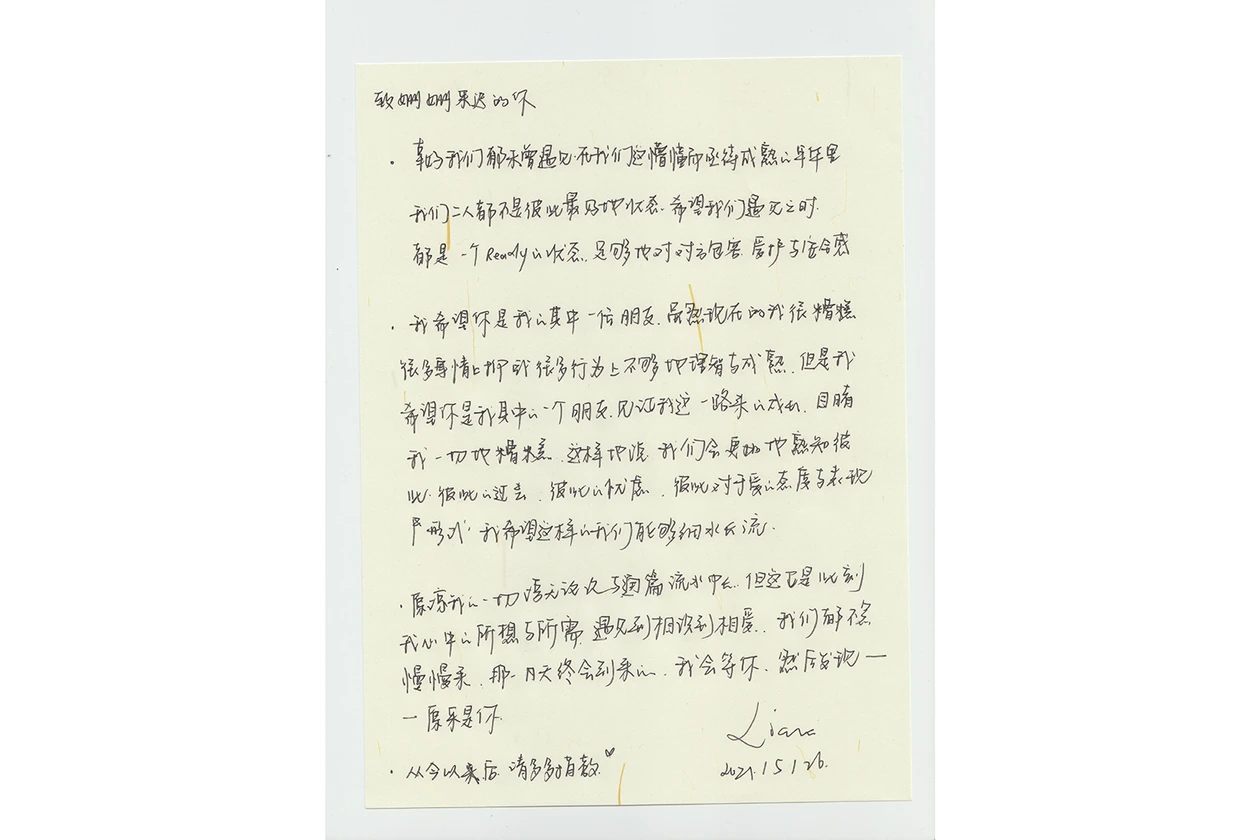 致姗姗来迟的你
· 幸好我们都未曾遇见.在我们这懵懂而亟待成熟的年年里
我们二人都不是彼此最好地状态.希望我们遇见之时.
都是一个Ready的状态.足够地对对方包容.爱护与安全感
· 我希望你是我的其中一位朋友.虽然现在的我很糟糕
很多事情上抑或很多行为上不够地理智与成熟.但是我
希望你是我其中的一个朋友.见证我这一路来的成长.目睹
我一切地糟糕.这样地话.我们会更好地熟知彼
此.彼此的过去.彼此的忧虑.彼此对于爱的态度与表现
形式.我希望这样的我们能够细水长流.
·原谅我的一切语无论次与通篇流水 但这正是此刻
我心中的所想与所需.遇见到相识到相爱.我们都不急
慢慢来.那一天终会到来的.我会等你.然后发现一
一原来是你.
· 从今以来后.请多多指教.♡
2021.5.26.